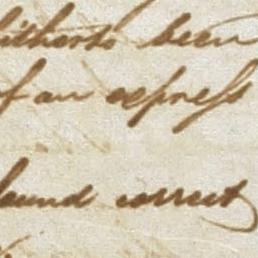 hitherto been
of an express
found correct